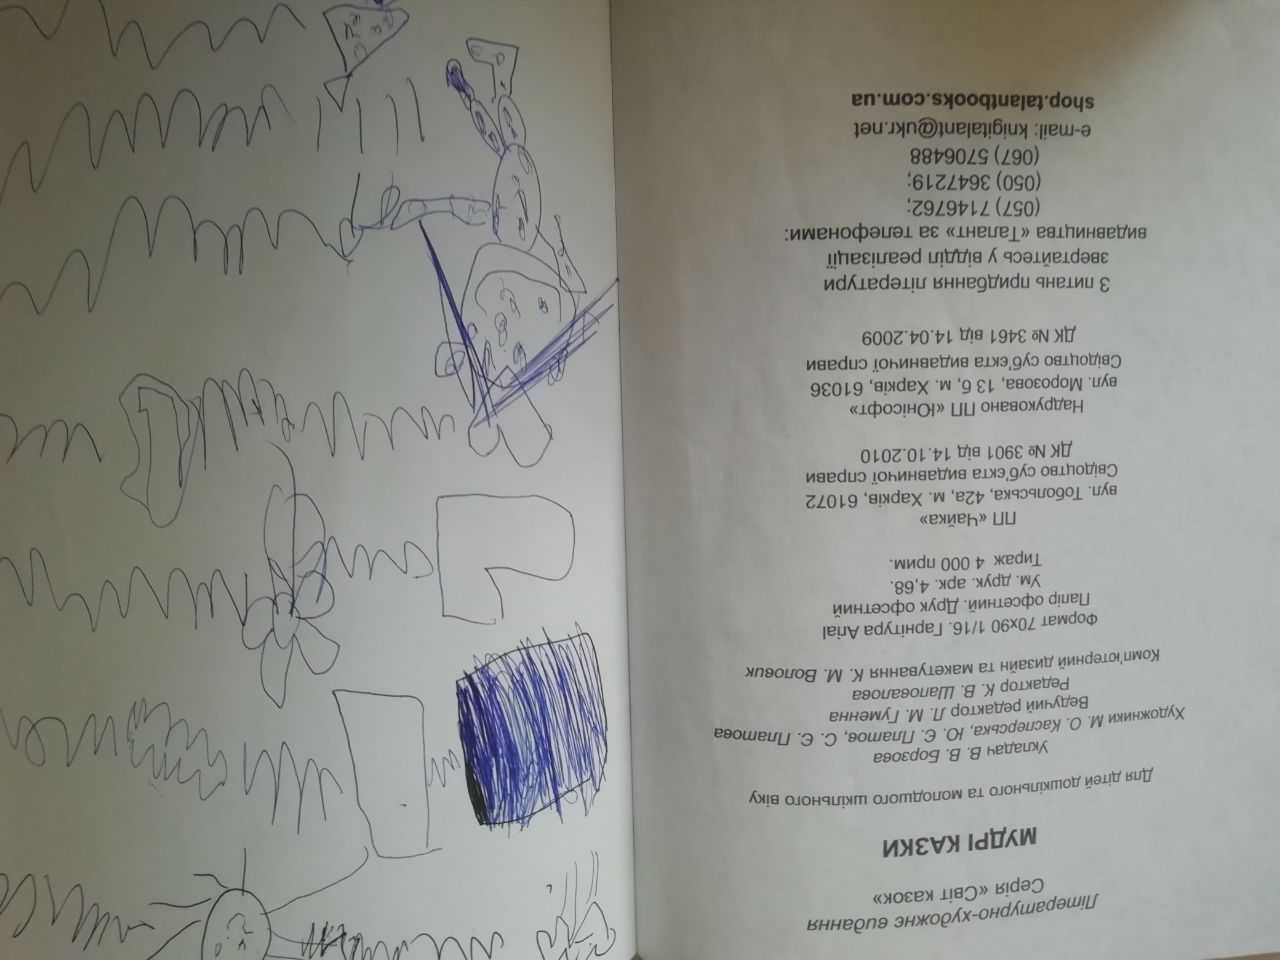 Літературно-художнє видання
Серія «Світ казок»
МУДРІ КАЗКИ
Для дітей дошкільного та молодшого шкільного віку
Укладач В. В. Борзова
Художники М. О. Касперська, Ю. Є. Платов, С. Є. Платова
Ведучий редактор Л. М. Гуменна
Редактор К. В. Шаповалова
Комп'ютерний дизайн та макетування К. М. Воловик
Формат 70х90 1/16. Гарнітура Arial
Папір офсетний. Друк офсетний
Ум. друк. арк. 4,68.
Тираж 4 000 прим.
ПП «Чайка»
вул. Тобольська, 42а, м. Харків, 61072
Свідоцтво суб'єкта видавничої справи
ДК № 3901 від 14.10.2010
Надруковано ПП «Юнісофт»
вул. Морозова, 13 б, м. Харків, 61036
Свідоцтво суб'єкта видавничої справи
ДК № 3461 від 14.04.2009
З питань придбання літератури
звертайтесь у відділ реалізації
видавництва «Талант» за телефонами:
(057) 7146762;
(050) 3647219;
(067) 5706488
e-mail: knigitalant@ukr.net
shop.talantbooks.com.ua